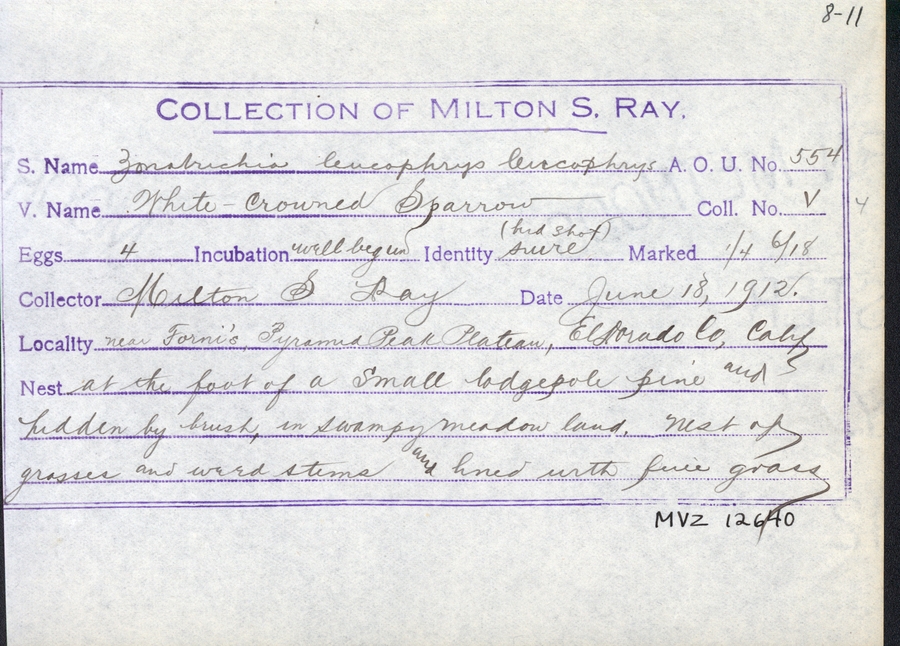 8-11
COLLECTION OF MILTON S. RAY.
S. Name Zonotrichia leucophrys leucophrys A. O. U. No. 554
V. Name White-Crowned Sparrow Coll. No. V 4
(bird shot)
Eggs 4 Incubation well begun Identity sure Marked 1/4 6/18
Collector Milton S Ray Date June 18, 1912.
Locality near Forni's, Pyramid Peak Plateau, ElDorado Co, Calif
Nest at the foot of a small lodgepole pine and
hidden by brush, in swampy meadow land. Nest of
grasses and weed stems and lined with fine grass
MVZ 12640